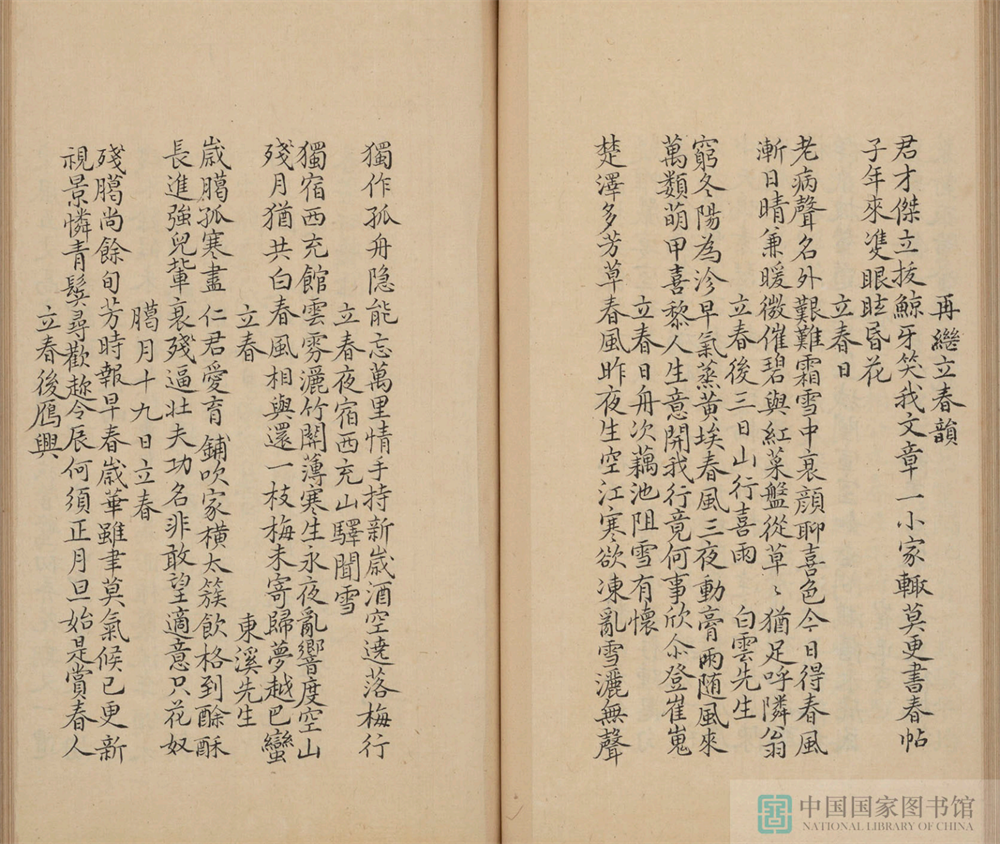 再繼立春韻
君才傑立拔鯨牙笑我文章一小家輙莫更書春帖
子年來雙眼眩昏花
立春日
老病聲名外艱難霜雪中衰顏聊喜色今日得春風
漸日晴兼暖微催碧與紅菜盤從草〻猶足呼隣翁
立春後三日山行喜雨 白雲先生
窮冬陽為沴早氣蒸黃埃春風三夜動膏雨随風來
萬類萌甲喜黎人生意開我行竟何事欣尒登崔嵬
立春日舟次藕池阻雪有懷
楚澤多芳草春風昨夜生空江寒欲凍亂雪灑無聲
獨作孤舟隐能忘萬里情手持新歲酒空遶落梅行
立春夜宿西充山驛聞雪
獨宿西充館雲雰灑竹關薄寒生永夜亂響度空山
殘月猶共白春風相與還一枝梅未寄歸夢越巴蠻
立春 東溪先生
歲臈孤寒盡 仁君愛育 鋪吹家横大簇飲格到酴酥
長進強兒輩衰殘逼壯夫功名非敢望適意只花奴
臈月十九日立春
殘臈尚餘旬芳時報早春歲華雖聿莫氣候已更新
視景憐青鬓尋歡趂今辰何須正月旦始是賞春人
立春後鴈興
中国国家图书馆
NATIONAL LIBRARY OF CHINA